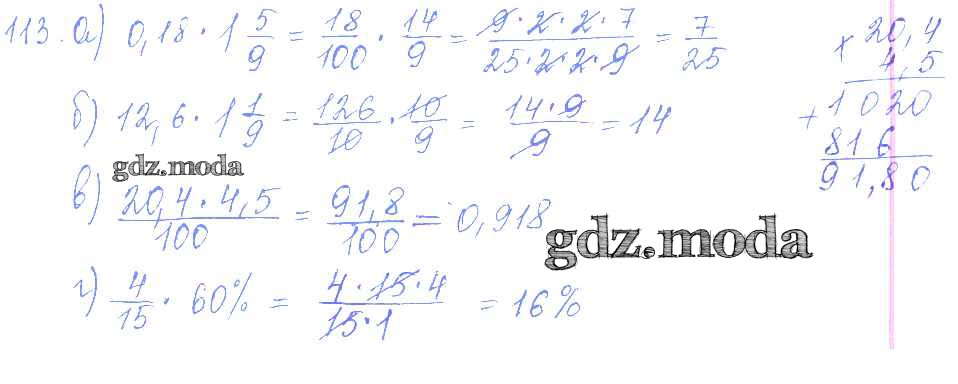 113. а) 0,18 · 1 5/9 = 18/100 · 14/9 = 9·2·2·7/25·2·2·9 = 7/25
б) 12,6 · 1 1/9 = 126/10 · 10/9 = 14·9/9 = 14
gdz.moda
в) 20,4 · 4,5/100 = 91,8/100 = 0,918
gdz.moda
г) 4/15 · 60% = 4·15·4/15·1 = 16%
× 20,4
4,5
+ 1020
816
91,80